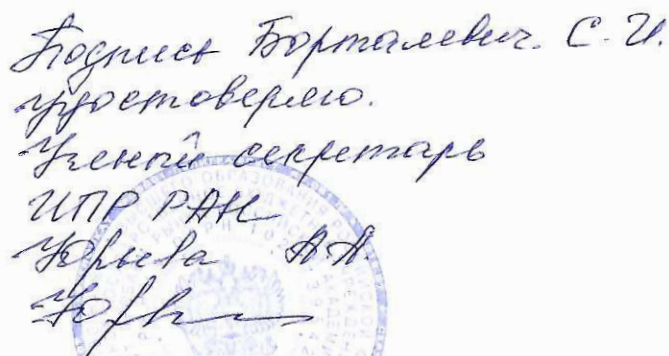 Подпись Борталевич. С. И.
удостоверяю.
Ученый секретарь
ИПР РАН
Юрьева А.А.